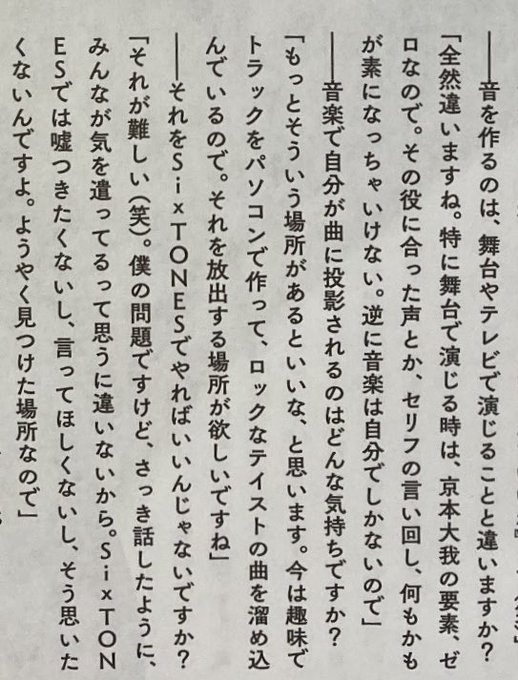 ――音を作るのは、舞台やテレビで演じることと違いますか？
「全然違いますね。特に舞台で演じる時は、京本大我の要素、ゼ
ロなので。その役に合った声とか、セリフの言い回し、何もかも
が素になっちゃいけない。逆に音楽は自分でしかないので」
――音楽で自分が曲に投影されるのはどんな気持ちですか？
「もっとそういう場所があるといいな、と思います。今は趣味で
トラックをパソコンで作って、ロックなテイストの曲を溜め込
んでいるので。それを放出する場所が欲しいですね」
――それをSixTONESでやればいいんじゃないですか？
「それが難しい（笑）。僕の問題ですけど、さっき話したように、
みんなが気を遣ってるって思うに違いないから。SixTON
ESでは嘘つきたくないし、言ってほしくないし、そう思いた
くないんですよ。ようやく見つけた場所なので」